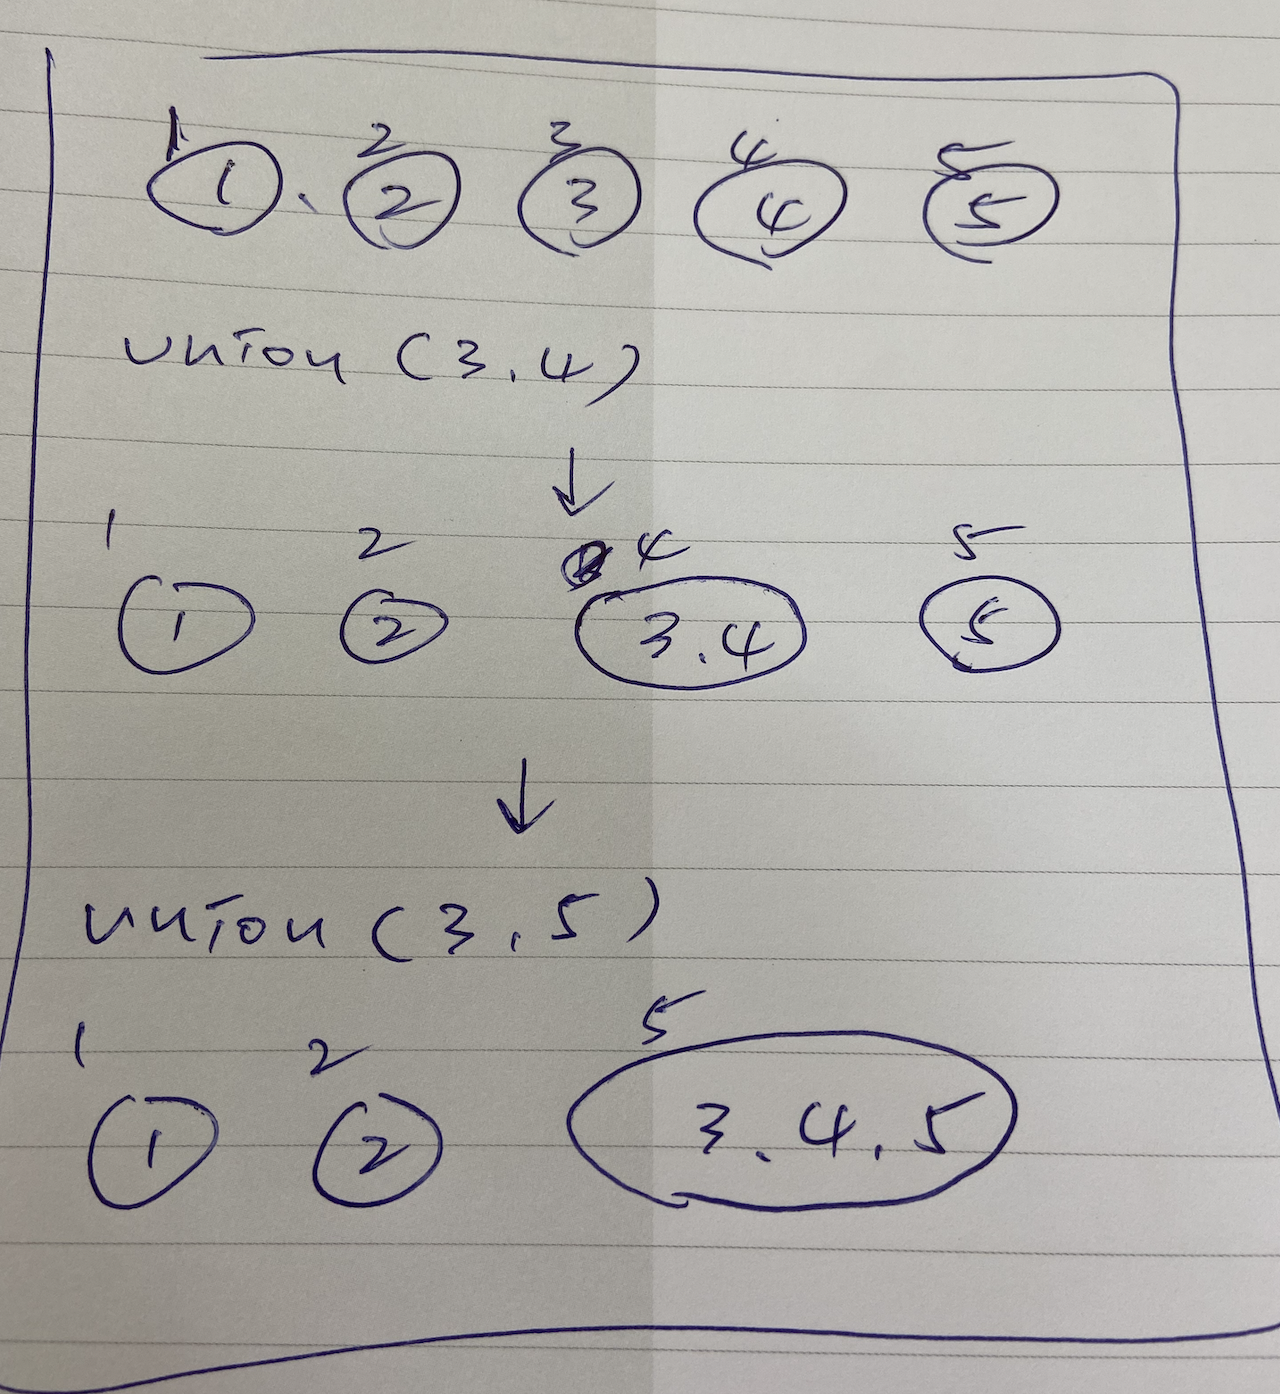 1 2 3 4 5
1 . 2 3 4 5
union (3.4)
↓
1 2 4 5
1 2 3.4 5
↓
union (3,5)
1 2 5
1 2 3.4.5